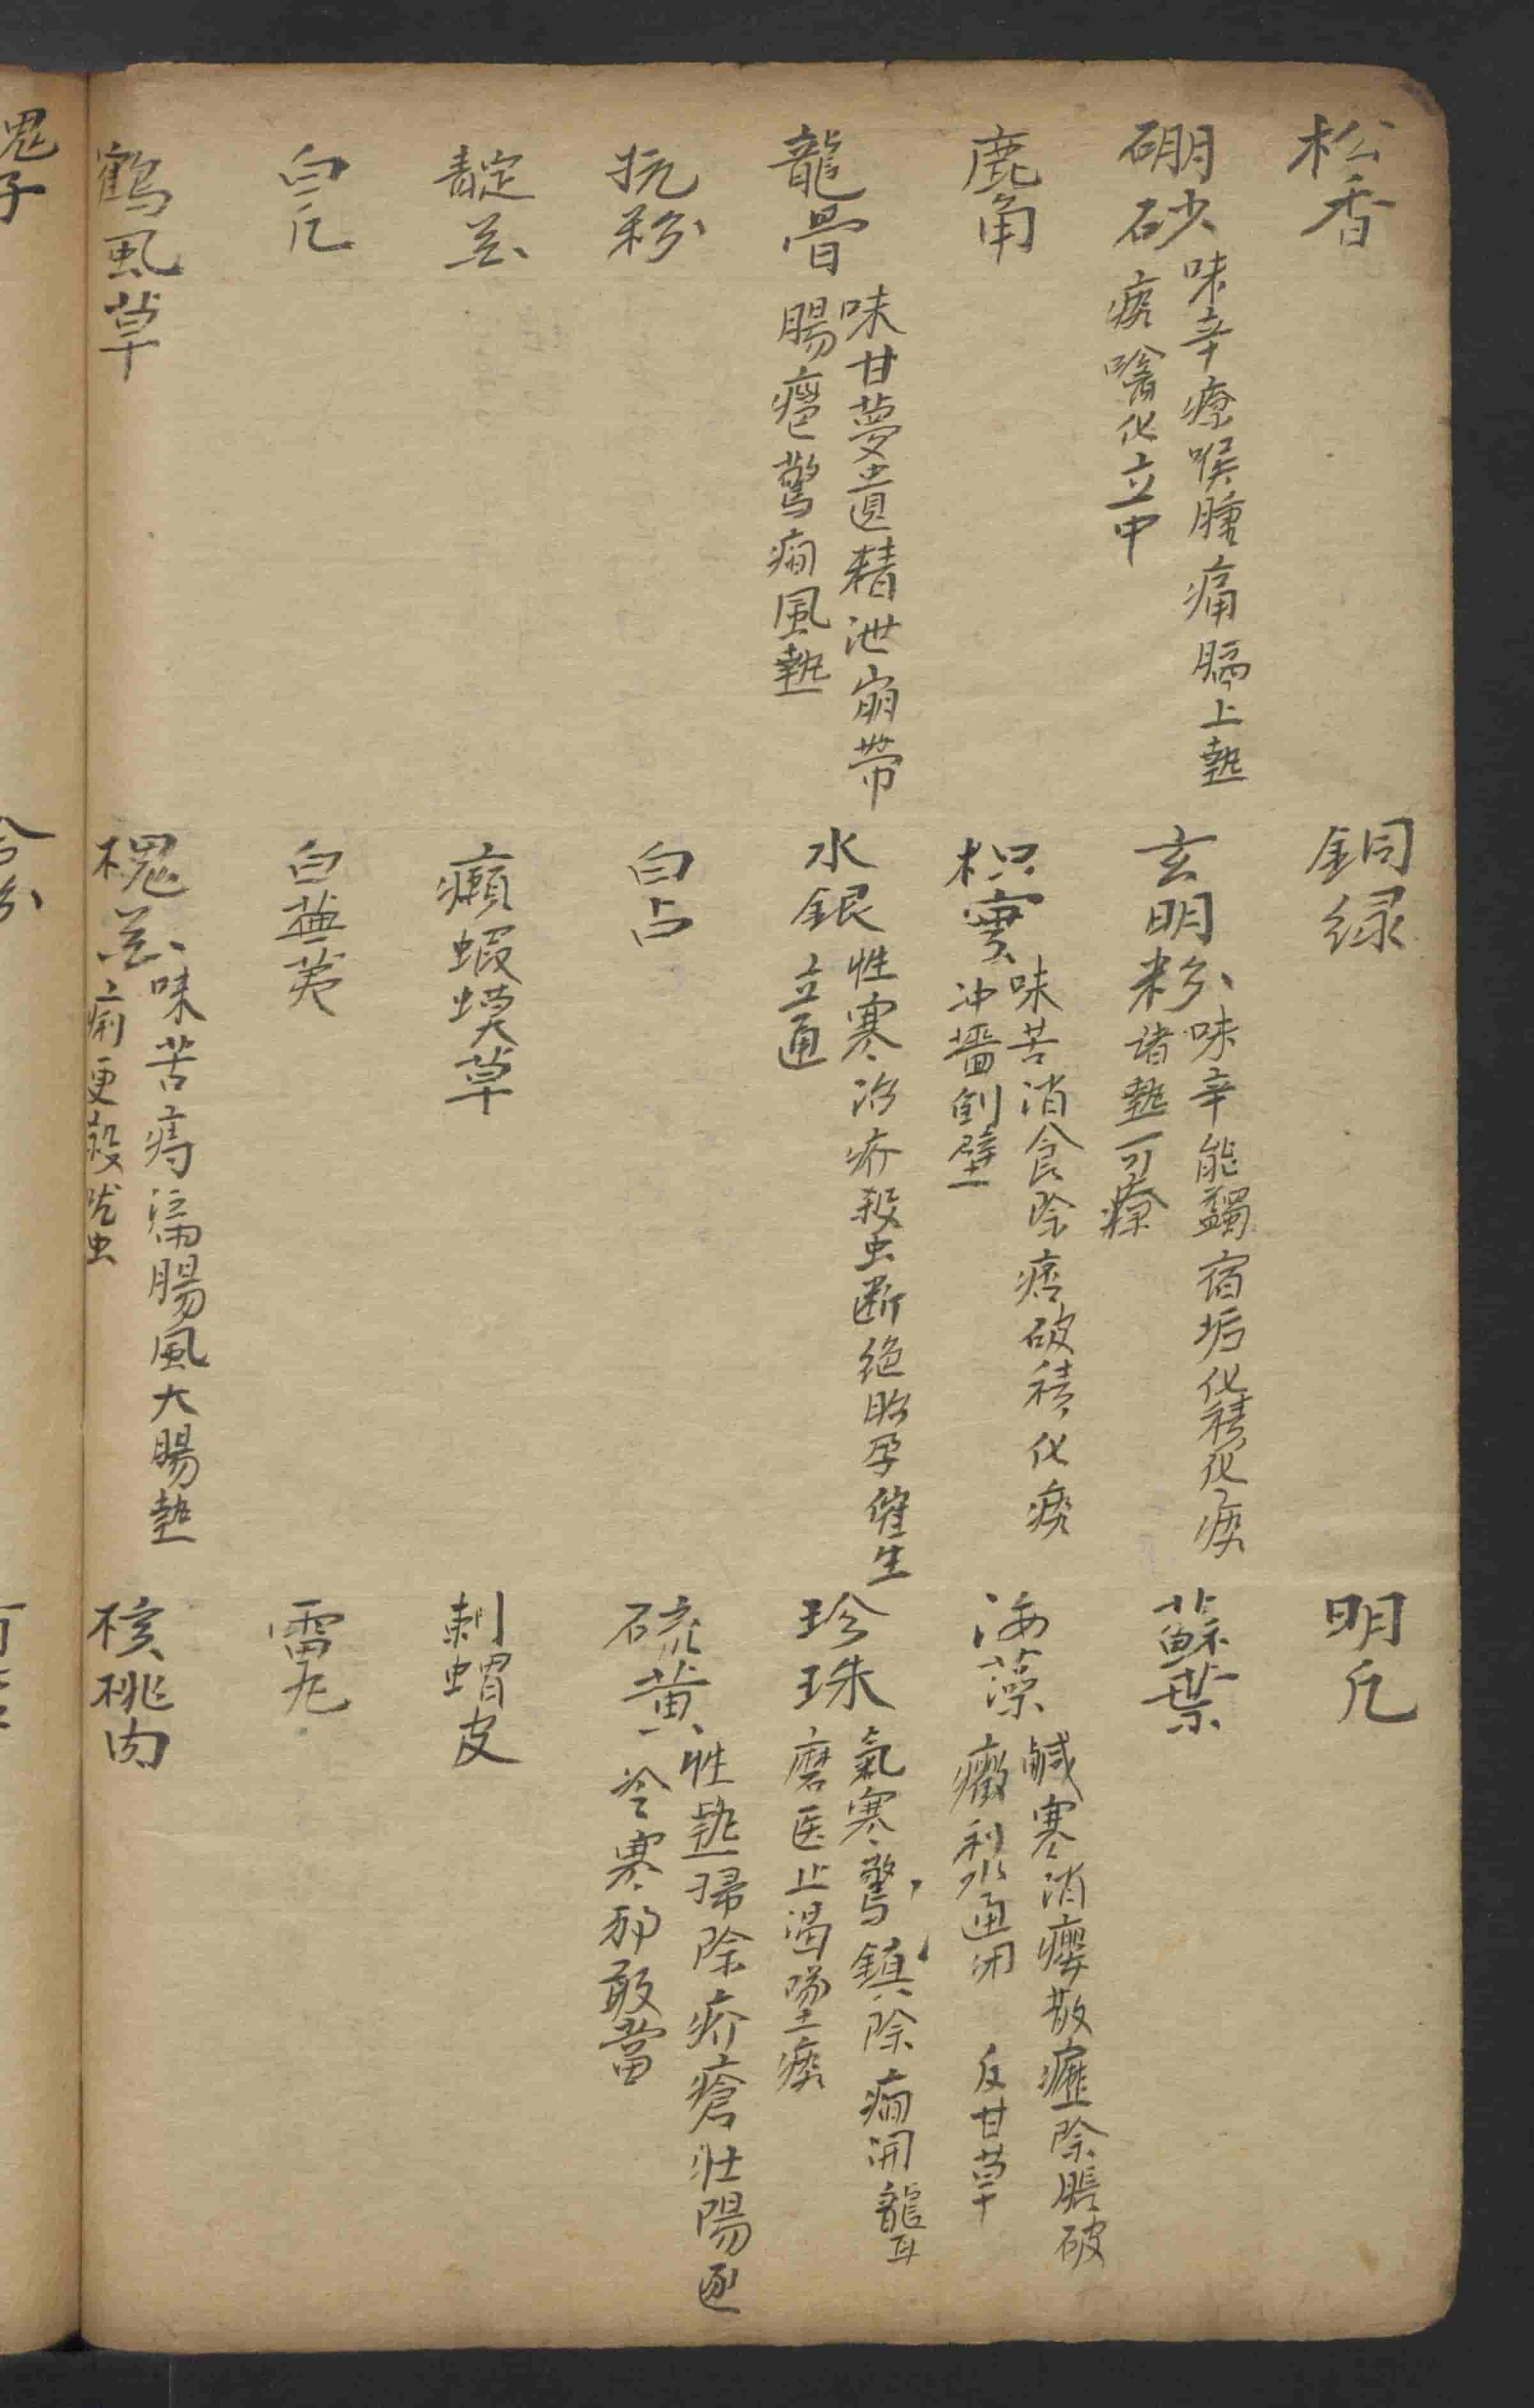 松香
硼砂
味辛療喉腫痛膈上熱
痰噙化立中
鹿角
龍骨
味甘夢遺精泄崩帶
腸癰驚癇風熱
抗粉
靛花
白凡
鶴虱草
銅绿
玄明粉
味辛能蠲宿垢化積化痰
诸熱可療
枳實
味苦消食除痞破積化痰
冲墻倒壁
水銀
性寒治疥殺虫断绝胎孕催生
立通
白占
癩蝦蟆草
白蕪荑
槐花
味苦痔漏腸風大腸熱
痢更殺蚘虫
明凡
蘇葉
海藻
鹹寒消癭散癧除脹破
癥利水通闭 反甘草
珍珠
氣寒驚鎮除癇開聾
磨医止渴墜痰
硫黄
性熱掃除疥瘡壯陽逐
冷寒邪敢當
刺蝟皮
雷丸
核桃肉